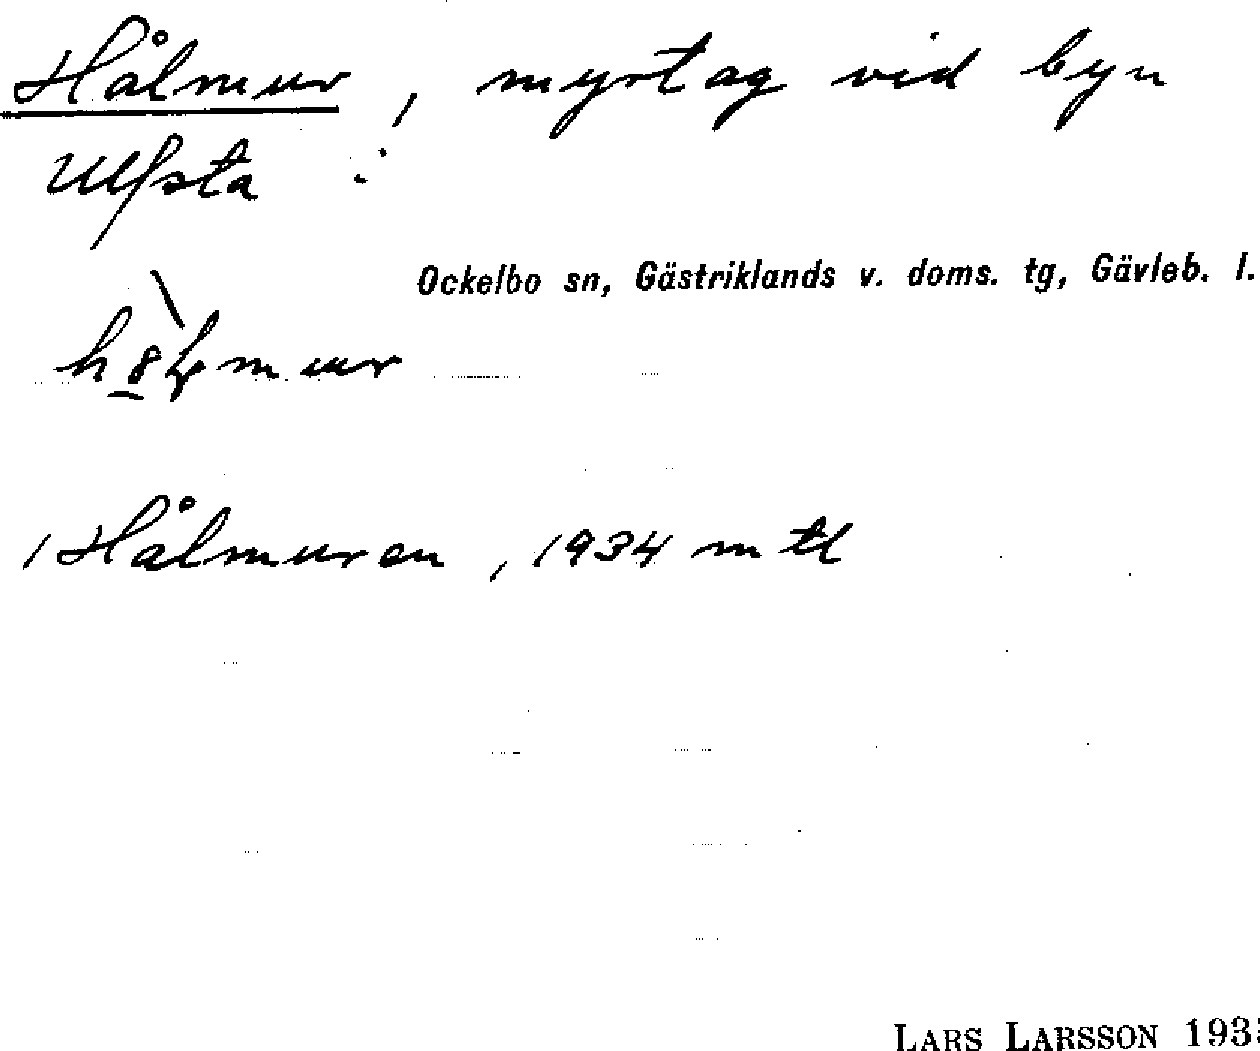 Hålmur, myrtag vid byn
Ulfsta i
Ockelbo sn, Gästriklands v. doms. tg, Gävleb. l.
/ Hålmuren, 1934 mtl
LARS LARSSON 193